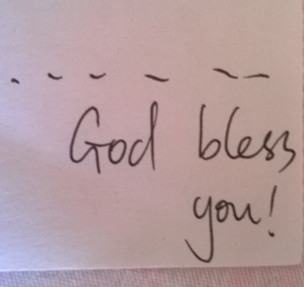 God bless
you!